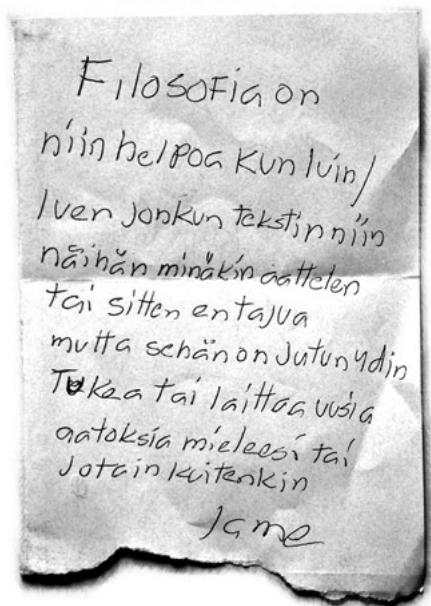 Filosofia on
niin helpoa kun luin/
luen jonkun tekstin niin
näihän minäkin aattelen
tai sitten en tajua
mutta sehän on jutun ydin
Tukea tai laittaa uusia
aatoksia mieleesi tai
jotain kuitenkin
Jame